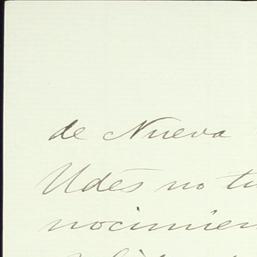 de Nueva
Udes no tu
nocimien